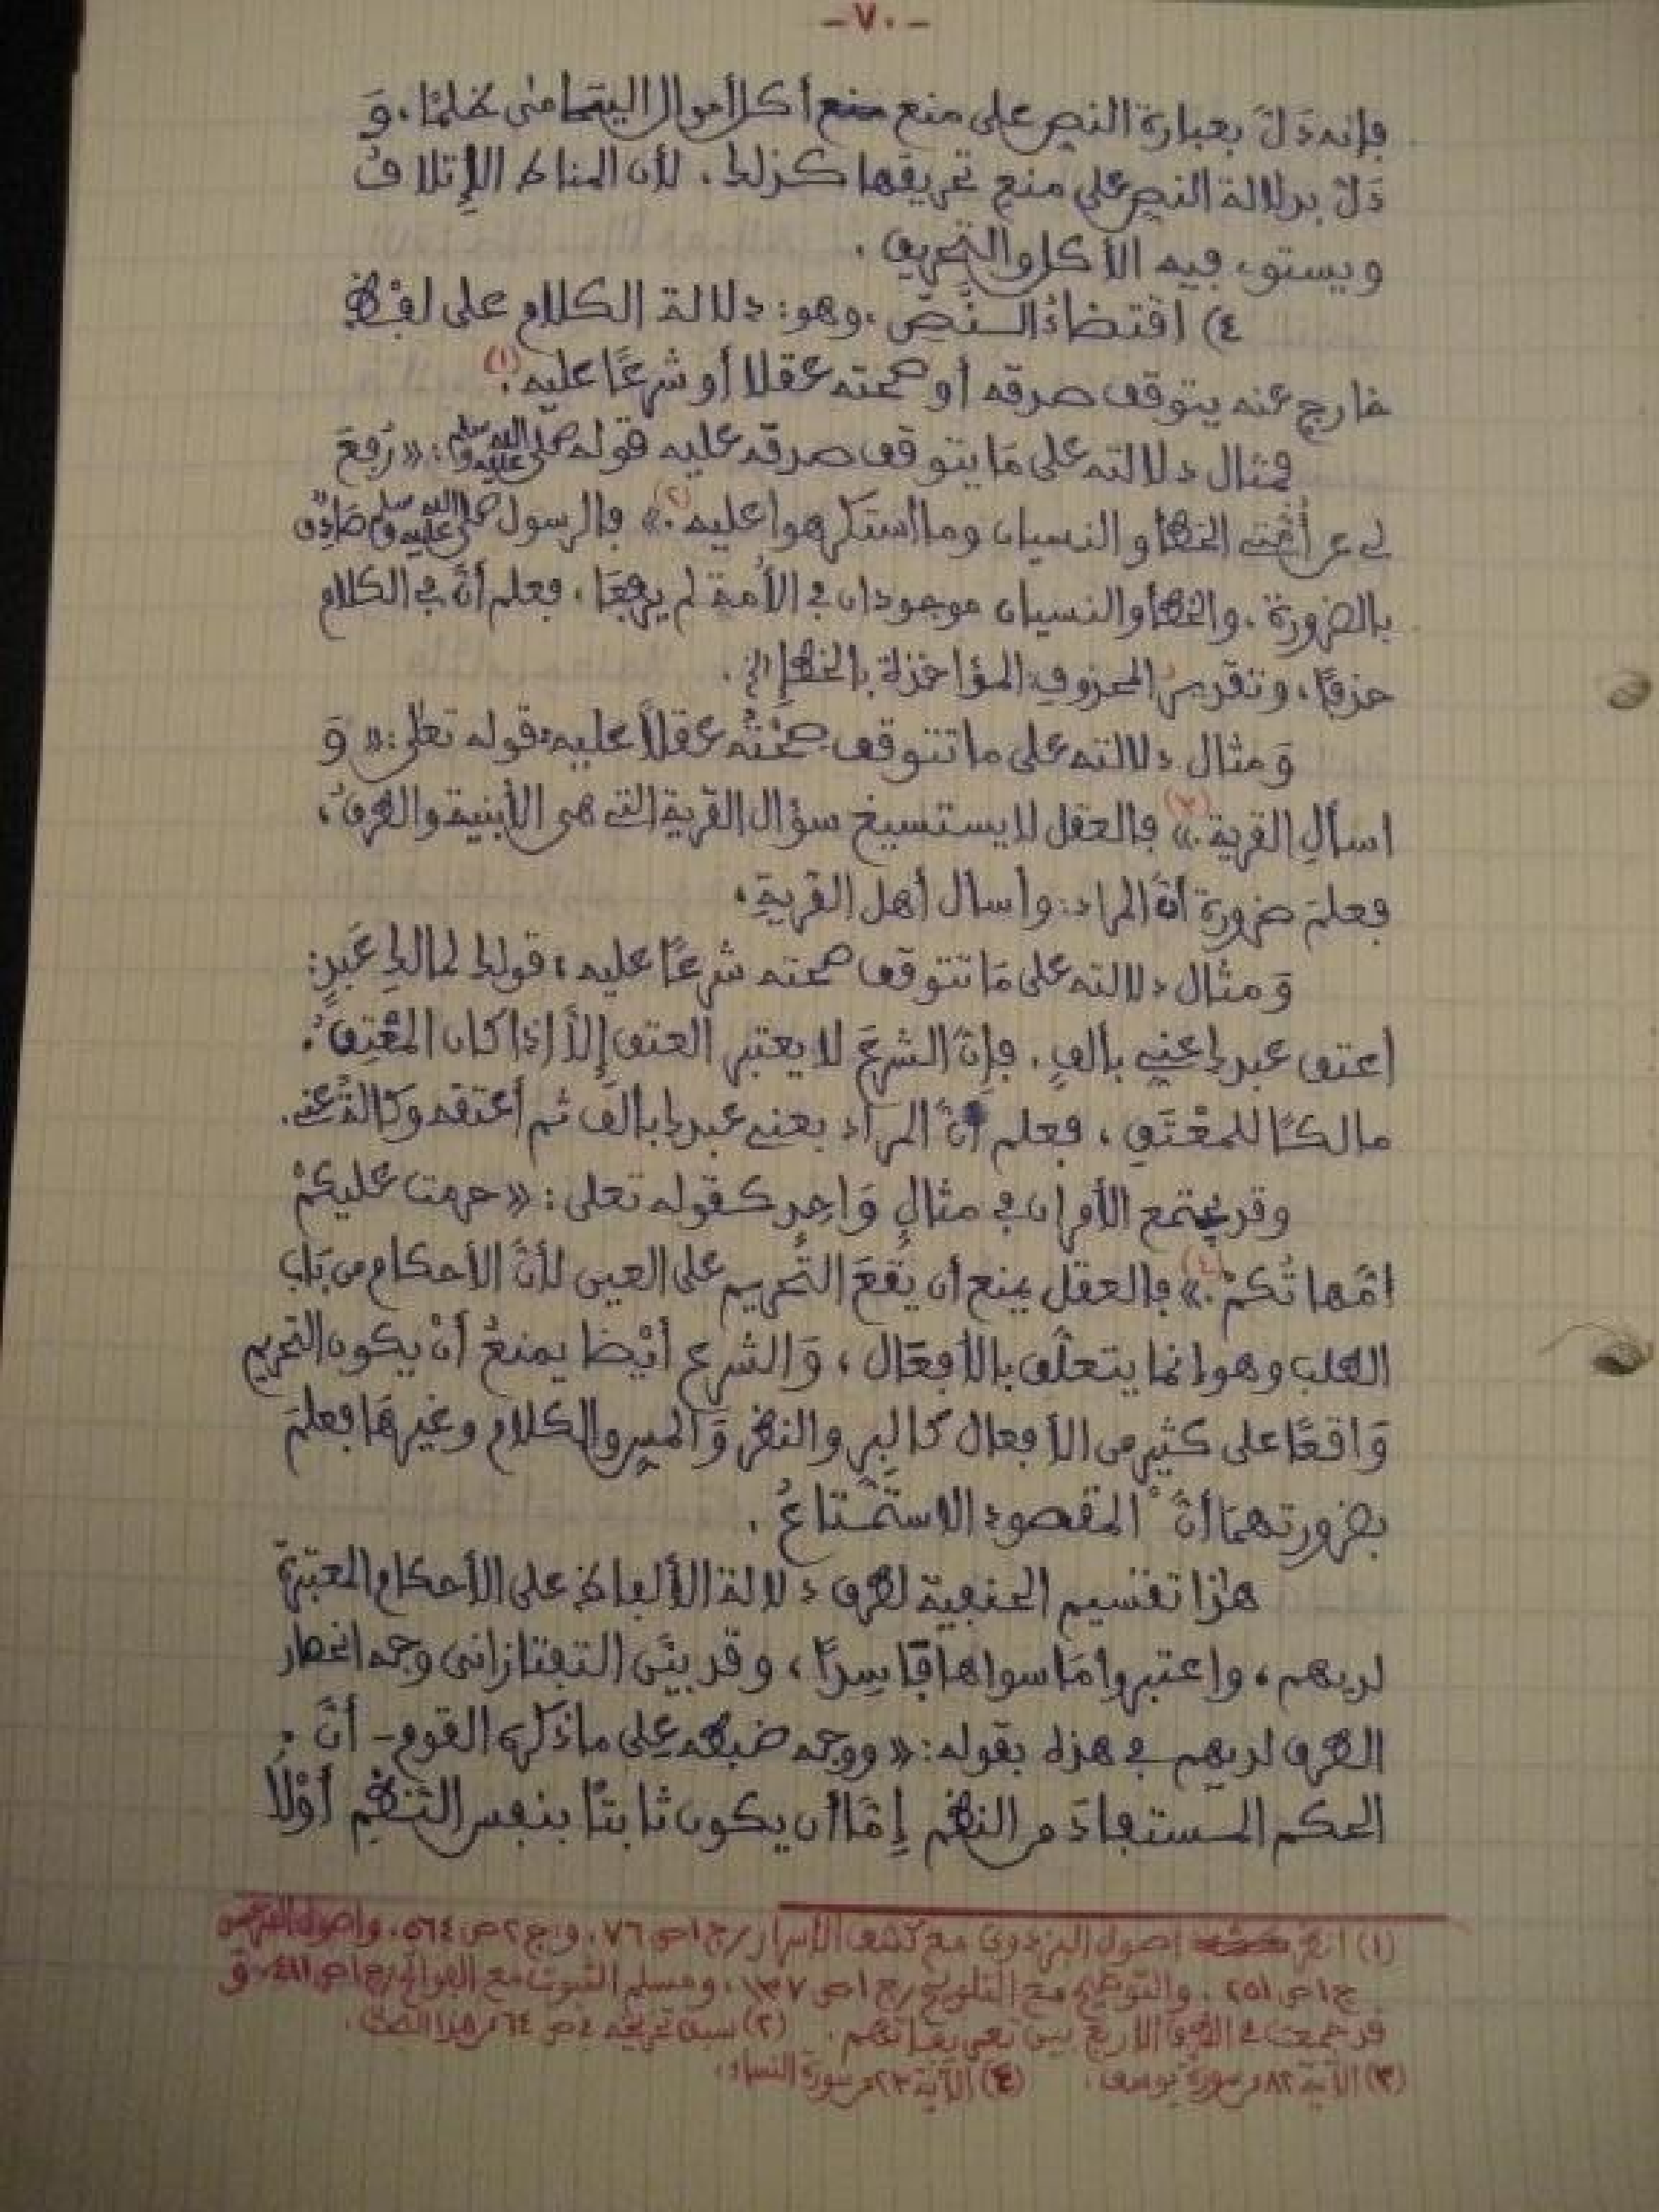 -٧٠-
فإنه دَلَّ بعبارة النص على منع أكل أموال اليتامى ظلمًا، وَ
دَلَّ بدلالة النص على منع تحريقها كذلك، لأن المناط الإتلافُ
ويستوي فيه الأكل والتحريق.
٤) اقتضاءُ النَّصِّ، وهو: دلالة الكلام على لفْظٍ
خارج عنه يتوقف صدقه أو صحته عقلا أو شرعًا عليه.(١)
فمثال دلالته على مَا يتوقف صدقه عليه قوله صلى الله عليه وسلم: «رُفِعَ
لي عن أُمَّتي الخطأ والنسيان وما استكرهوا عليه.»(٢) فالرسول صلى الله عليه وسلم صَادِقٌ
بالضرورة، والخطأ والنسيان موجودان في الأمة لم يرفعَا، فعلم أنَّ في الكلام
حذفًا، وتقديرُ المحذوفِ: المؤاخذة بالخطإِ الخ.
وَمثال دلالته على ما تتوقف صحَّتُه عقلاً عليه: قوله تعلى: «وَ
اسألِ القرية.»(٣) فالعقل لا يستسيغ سؤال القرية التي هي الأبنية والطرقُ،
فعلمَ ضرورة أنَّ المراد: واسأل أهل القريةِ.
وَمثال دلالته على مَا تتوقف صحته شرعًا عليه: قولك لمالكِ عَبدٍ:
اعتق عبدك عني بألفٍ. فإنَّ الشرعَ لا يعتبر العتق إلاَّ إذا كان المعْتِقُ
مالكًا للمعْتَقِ، فعلم أنَّ المراد بعني عبدك بألف ثم أعتقه وكالةً عني.
وقد يجتمع الأمران في مثالٍ وَاحِدٍ كقوله تعلى: «حرمت عليكمْ
امَّهاتُكمْ.»(٤) فالعقل يمنع أن يَقَعَ التَّحريم على العين لأنَّ الأحكام من بَاب
الطلب وهو إنما يتعلَّق بالأفعَال، وَالشرع أيْضًا يمنعُ أنْ يكون التحريم
وَاقعًا على كثير من الأفعال كالبِر والنظر وَالمس والكلام وغيرهَا فعلمَ
بضرورتهمَا أنَّ المقصود الاستمْتاعُ.
هاذا تقسيم الحنفية لطرق دلالة الألفاظ على الأحكام المعتبرة
لديهم، واعتبروا مَا سواها فَاسِدًا، وقد بيَّن التفتازاني وجه انحصار
الطرق لديهم في هذه بقوله: «ووجه ضبطه على ما ذكره القوم - أنَّ
الحكم المستفادَ من النظم إمَّا أن يكون ثابتًا بنفس النَّظْمِ أوْلاَ
(١) انظر اصول البزدوي مع كشف الأسرار ج١ص٧٦، وج٢ص٥٦٤، واصول السرخسي
ج١ص٢٥١، والتوضيح مع التلويح ج١ص١٣٧، ومسلم الثبوت مع الفواتح ج١ص٤١١، وَ
قد جمعت في الطرق الأربع بين تعريفاتهم. (٢) سبق تخريجه في ص٦٤ من هذا البحث.
(٣) الآية ٨٢ من سورة يوسف. (٤) الآية ٢٣ من سورة النساء.